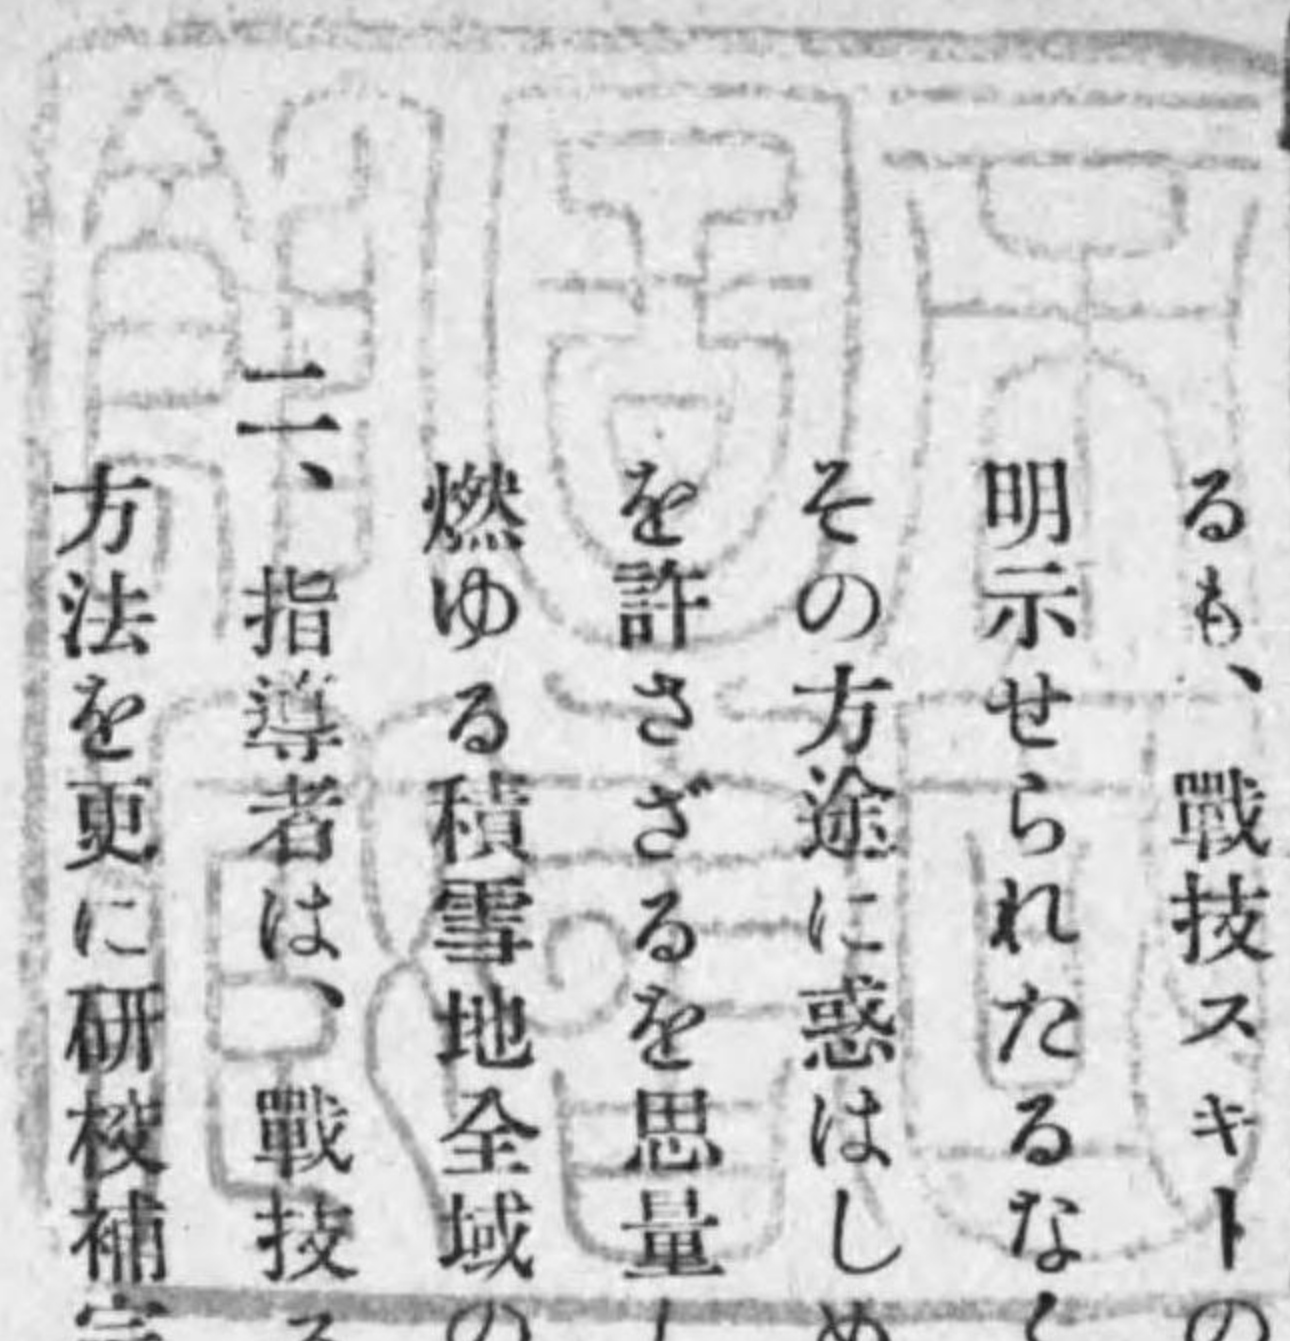 るも、戰技スキーの
明示せられたるなく
その方途に惑はしめ
を許さざるを思量し
燃ゆる積雪地全域の
二、指導者は、戰技ス
方法を更に研校補完